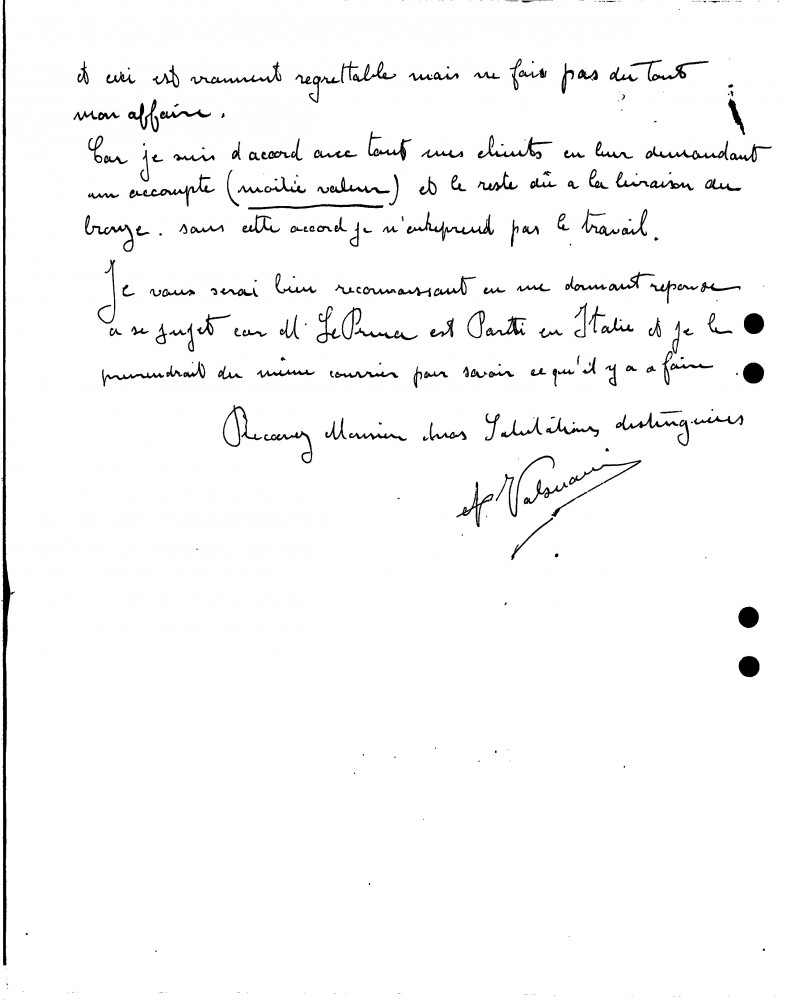 et ceci est vraiment regrettable mais ne fais pas du tout
mon affaire.
Car je suis d'accord avec tout mes clients en leur demandant
un accompte (moitié valeur) et le reste dû a la livraison du
bronze. sans cette accord je n'entreprend pas le travail.
Je vous serai bien reconnaissant en me donnant reponse
a se sujet car Mr Le Prince est Partti en Italie et je le
previendrait du même courrier pour savoir ce qu'il y a a faire.
Recevez Monsieur mes Salutâtions distinguées
Valsuani